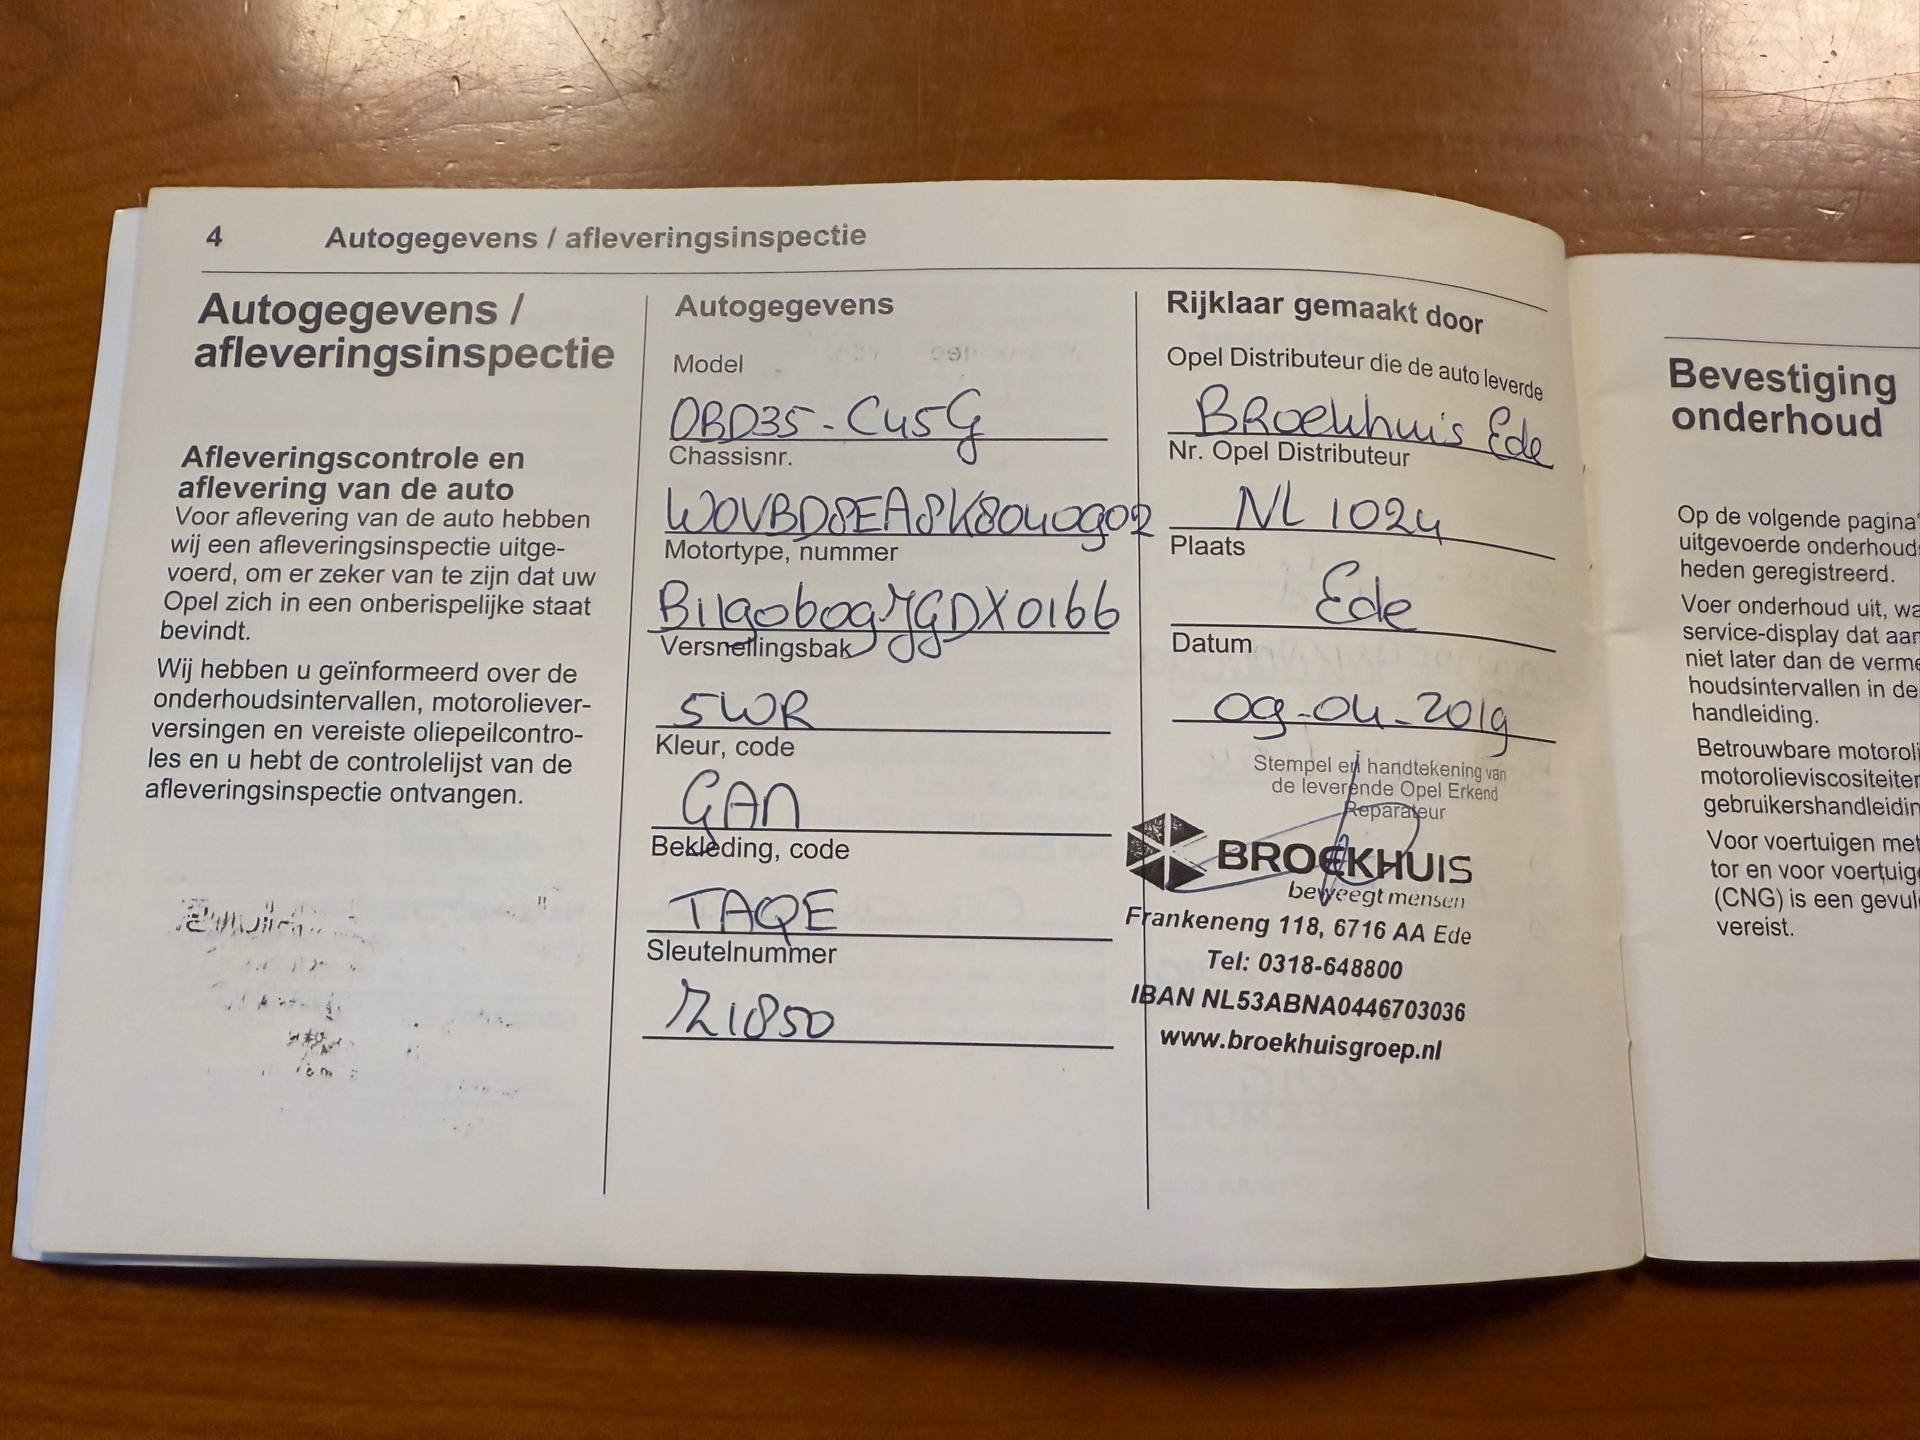 4 Autogegevens / afleveringsinspectie
Autogegevens /
afleveringsinspectie
Afleveringscontrole en
aflevering van de auto
Voor aflevering van de auto hebben
wij een afleveringsinspectie uitge-
voerd, om er zeker van te zijn dat uw
Opel zich in een onberispelijke staat
bevindt.
Wij hebben u geïnformeerd over de
onderhoudsintervallen, motoroliever-
versingen en vereiste oliepeilcontro-
les en u hebt de controlelijst van de
afleveringsinspectie ontvangen.
Autogegevens
Model
OBD35-C45G
Chassisnr.
W0VBD8EA8K8040902
Motortype, nummer
Versnellingsbak
5WR
Kleur, code
GAN
Bekleding, code
TAQE
Sleutelnummer
Z1850
Rijklaar gemaakt door
Opel Distributeur die de auto leverde
Broekhuis Ede
Nr. Opel Distributeur
NL 1024
Plaats
Ede
Datum
09-04-2019
Stempel en handtekening van
de leverende Opel Erkend
Reparateur
BROEKHUIS
beweegt mensen
Frankeneng 118, 6716 AA Ede
Tel: 0318-648800
IBAN NL53ABNA0446703036
www.broekhuisgroep.nl
Bevestiging
onderhoud
Op de volgende pagina'
uitgevoerde onderhoud
heden geregistreerd.
Voer onderhoud uit, wa
service-display dat aan
niet later dan de verme
houdsintervallen in de
handleiding.
Betrouwbare motoroli
motorolieviscositeiter
gebruikershandleidin
Voor voertuigen met
tor en voor voertuige
(CNG) is een gevul
vereist.